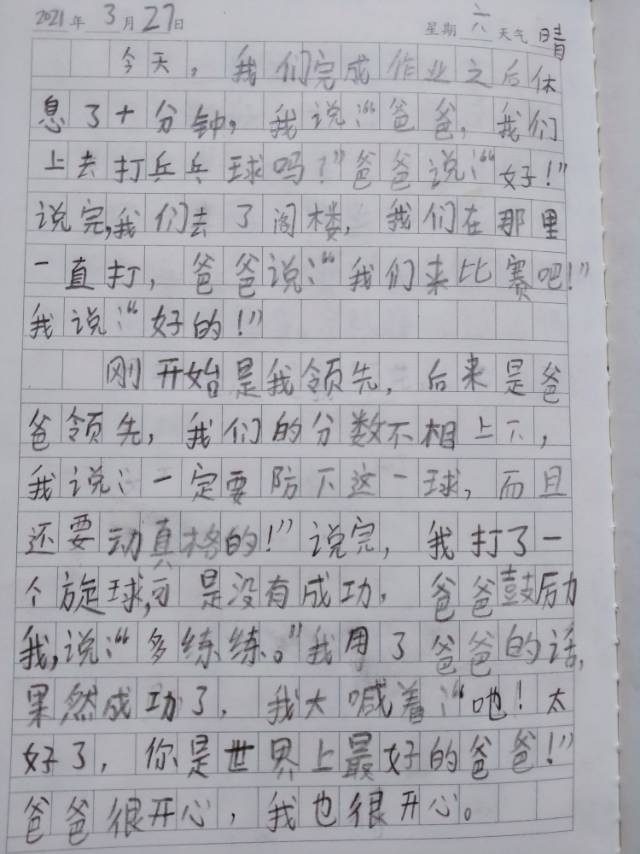 2021年3月27日 星期六天气晴
今天，我们完成作业之后休
息了十分钟，我说：“爸爸，我们
上去打乒乓球吗？”爸爸说：“好！”
说完，我们去了阁楼，我们在那里
一直打，爸爸说：“我们来比赛吧！”
我说：“好的！”
刚开始是我领先，后来是爸
爸领先，我们的分数不相上下，
我说：一定要防下这一球，而且
还要动真格的！”说完，我打了一
个旋球，可是没有成功，爸爸鼓励
我，说：“多练练。”我用了爸爸的话，
果然成功了，我大喊着：“吔！太
好了，你是世界上最好的爸爸！”
爸爸很开心，我也很开心。